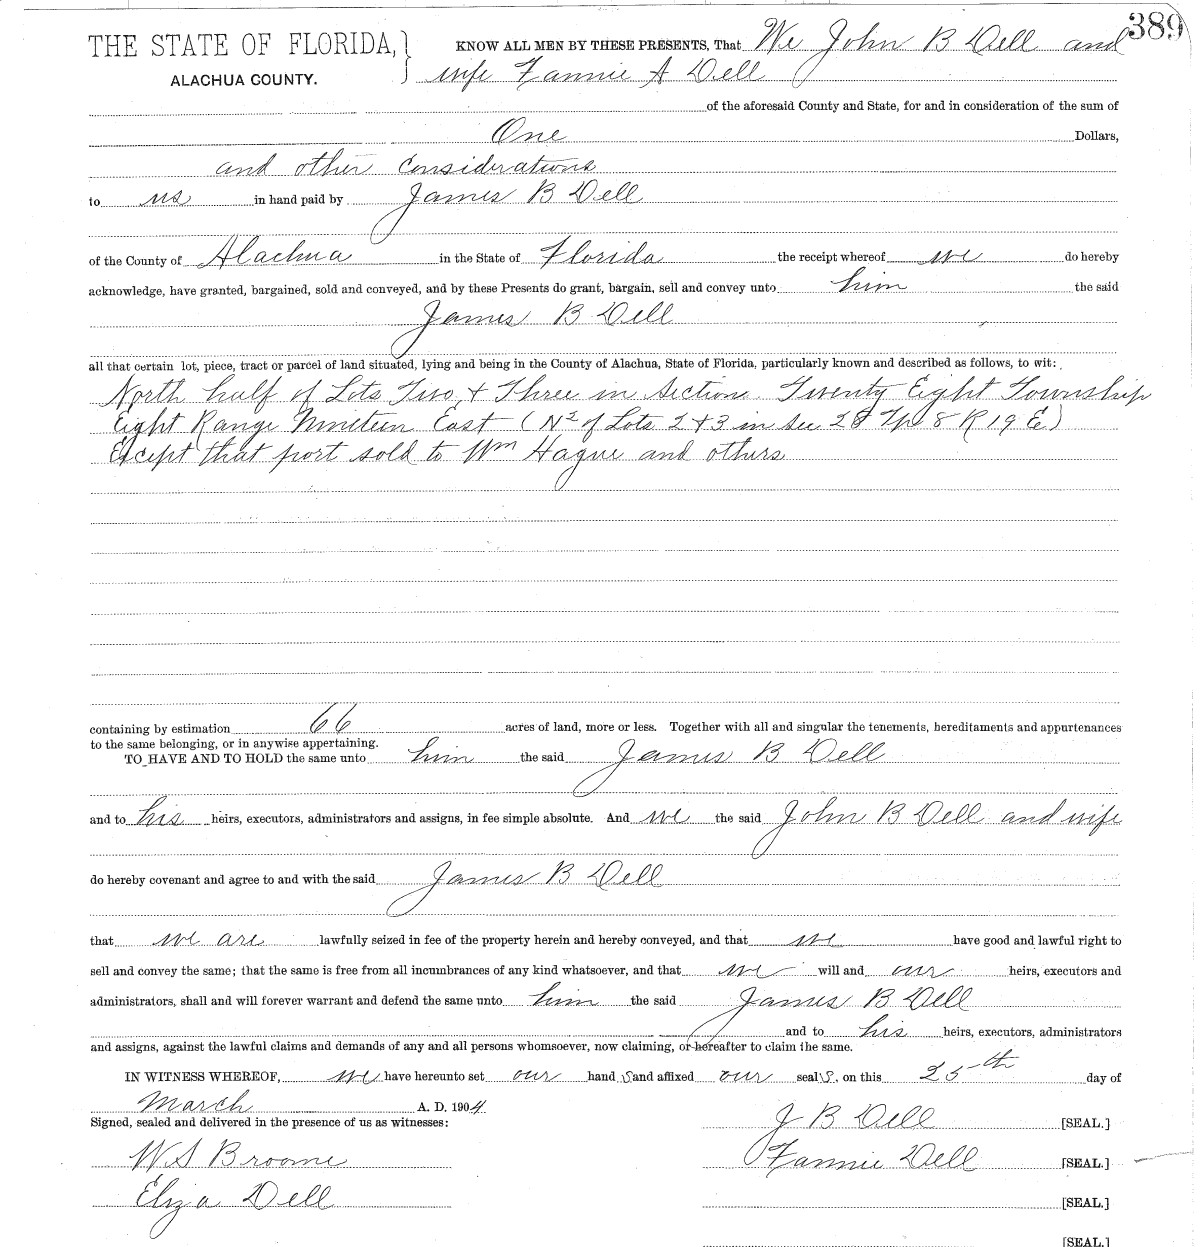 389
THE STATE OF FLORIDA, } KNOW ALL MEN BY THESE PRESENTS, That We John B Dell and
ALACHUA COUNTY. wife Fannie A Dell
of the aforesaid County and State, for and in consideration of the sum of
One Dollars,
and other Considerations
to us in hand paid by James B Dell
of the County of Alachua in the State of Florida the receipt whereof we do hereby
acknowledge, have granted, bargained, sold and conveyed, and by these Presents do grant, bargain, sell and convey unto him the said
James B Dell
all that certain lot, piece, tract or parcel of land situated, lying and being in the County of Alachua, State of Florida, particularly known and described as follows, to wit:
North half of Lots Two & Three in Section Twenty Eight Township
Eight Range Nineteen East (N2 of Lots 2 & 3 in Sec 28 Tp 8 R 19 E)
Except that port sold to Wm Hague and others
containing by estimation 66 acres of land, more or less. Together with all and singular the tenements, hereditaments and appurtenances
to the same belonging, or in anywise appertaining.
TO HAVE AND TO HOLD the same unto him the said James B Dell
and to his heirs, executors, administrators and assigns, in fee simple absolute. And we the said John B Dell and wife
do hereby covenant and agree to and with the said James B Dell
that we are lawfully seized in fee of the property herein and hereby conveyed, and that we have good and lawful right to
sell and convey the same; that the same is free from all incumbrances of any kind whatsoever, and that we will and our heirs, executors and
administrators, shall and will forever warrant and defend the same unto him the said James B Dell
and to his heirs, executors, administrators
and assigns, against the lawful claims and demands of any and all persons whomsoever, now claiming, or hereafter to claim the same.
IN WITNESS WHEREOF, we have hereunto set our hands and affixed our seals, on this 25th day of
March A. D. 1904
Signed, sealed and delivered in the presence of us as witnesses: J B Dell [SEAL.]
W S Broome Fannie Dell [SEAL.]
Eliza Dell [SEAL.]
[SEAL.]